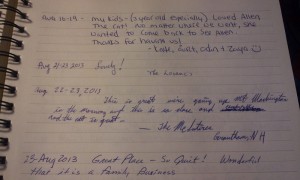 Aug 16-19 - My kids - (3 year old especially) Loved Aven
The cat! No matter where we went, she
wanted to come back to see Aven.
Thanks for having us!
- Kate,
Aug 21-23 2013 Lovely!
The
Aug. 22-23, 2013
This is great were going up Mt Washington
in the morning and this is so close and
and the rest is great.
- The
Grantham, NH
25-Aug 2013 Great Place - So Quiet! Wonderful
that it is a Family Business